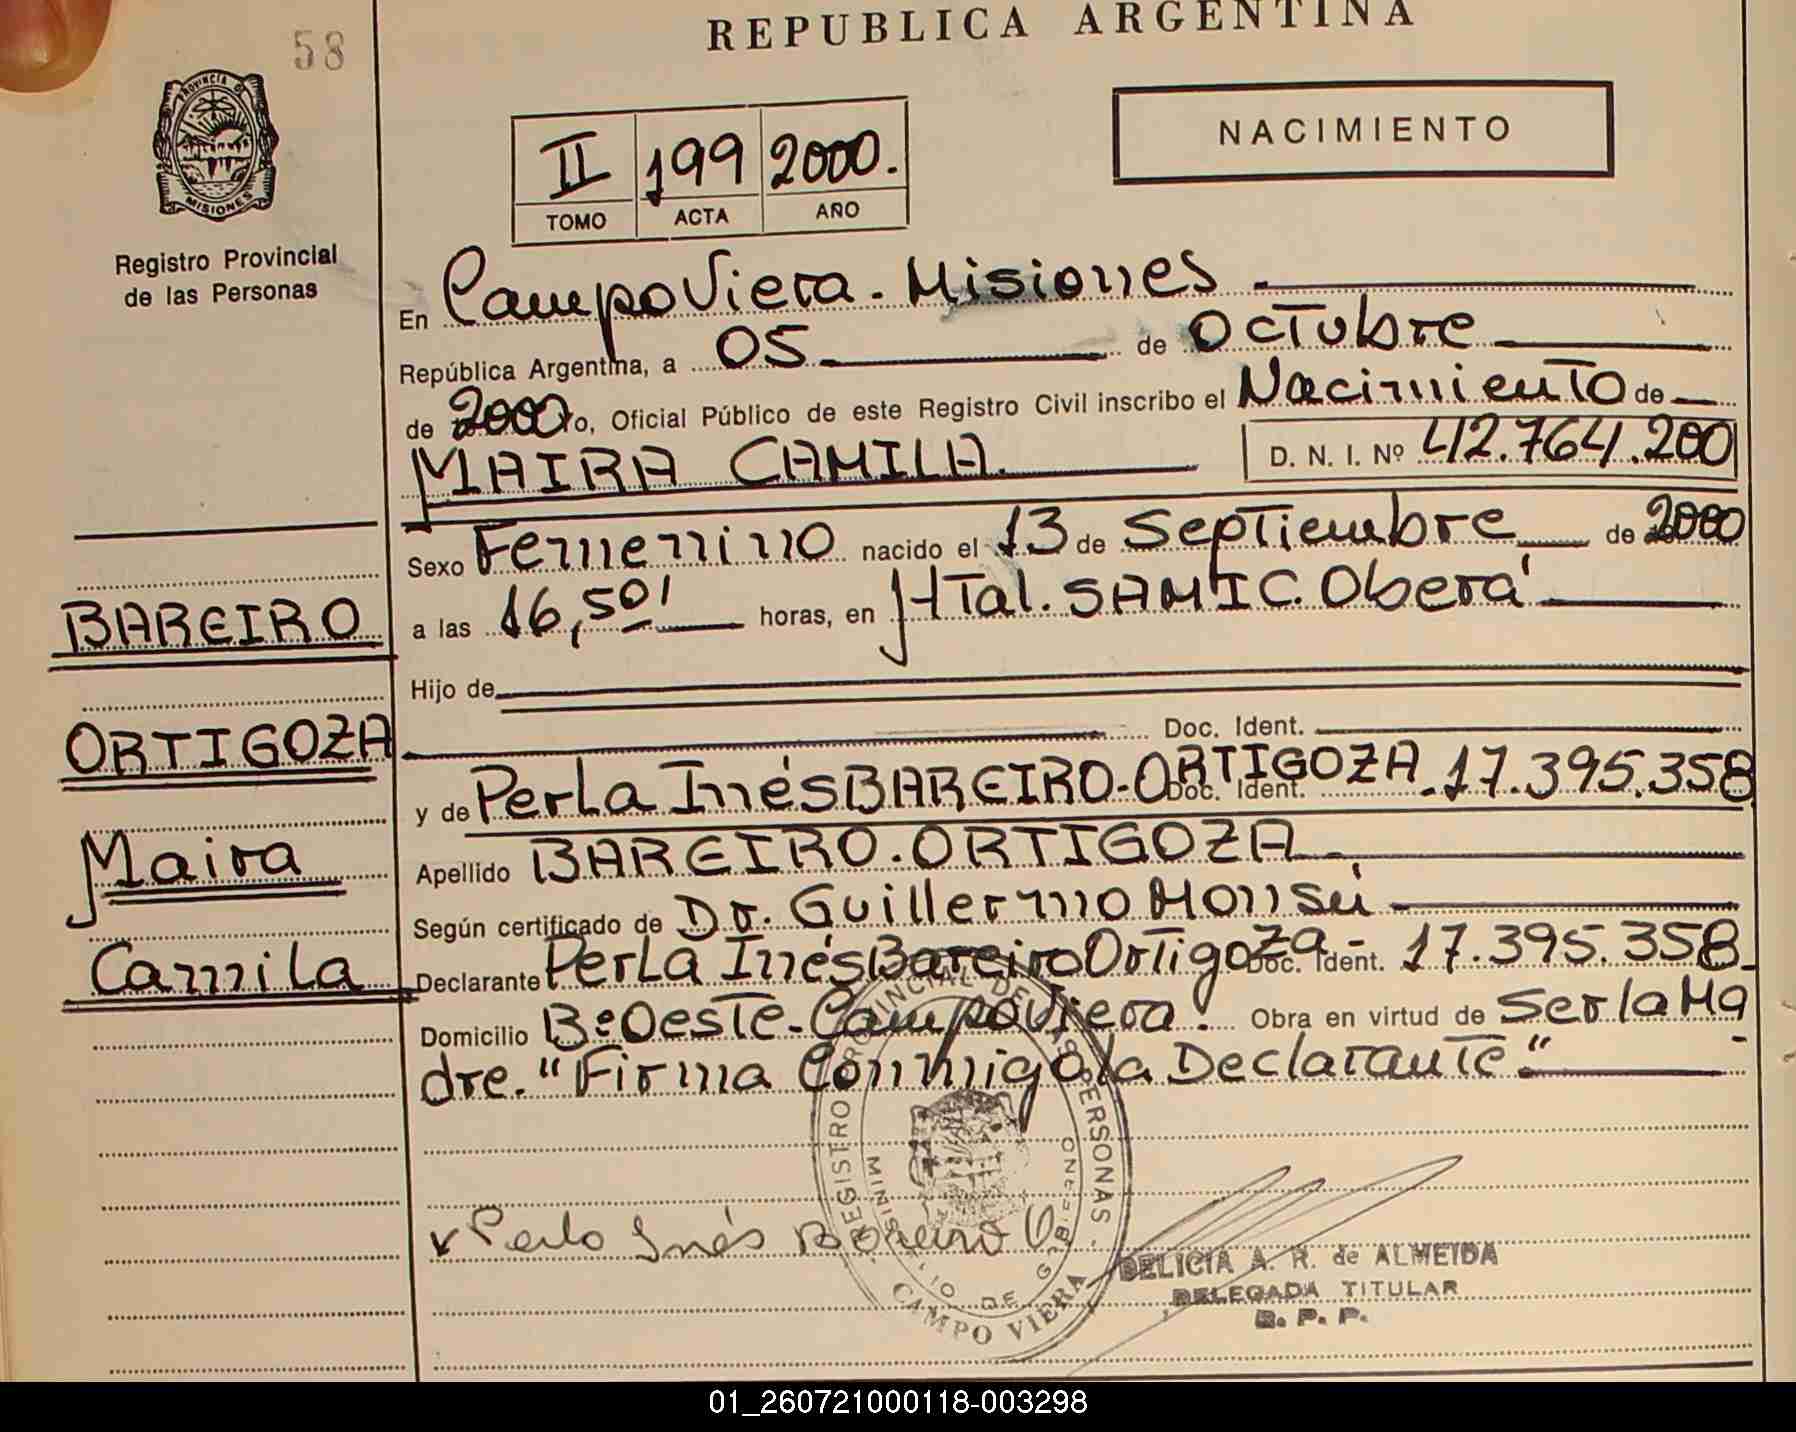 58
REPUBLICA ARGENTINA
PROVINCIA DE
MISIONES
Registro Provincial
de las Personas
II 199 2000.
TOMO ACTA AÑO
NACIMIENTO
En Campo Viera. Misiones
República Argentina, a 05 de Octubre
de 2000 Yo, Oficial Público de este Registro Civil inscribo el Nacimiento de
MAIRA CAMILA. D. N. I. Nº 42.764.200
Sexo Femenino nacido el 13 de Septiembre de 2000
a las 16,50' horas, en HTal. SAMIC. Oberá
Hijo de
Doc. Ident.
y de Perla Inés BAREIRO-ORTIGOZA Doc. Ident. 17.395.358
Apellido BAREIRO. ORTIGOZA
Según certificado de Dr. Guillermo Monsú
Declarante Perla Inés Bareiro Ortigoza - Doc. Ident. 17.395.358
Domicilio Bº Oeste - Campo Viera. Obra en virtud de ser la Ma
dre. "Firma Conmigo la Declarante"
BAREIRO
ORTIGOZA
Maira
Camila
Perla Inés Bareiro O
REGISTRO PROVINCIAL DE LAS PERSONAS
MINISTERIO DE GOBIERNO
CAMPO VIERA
DELICIA A. R. de ALMEIDA
DELEGADA TITULAR
R. P. P.
01_260721000118-003298